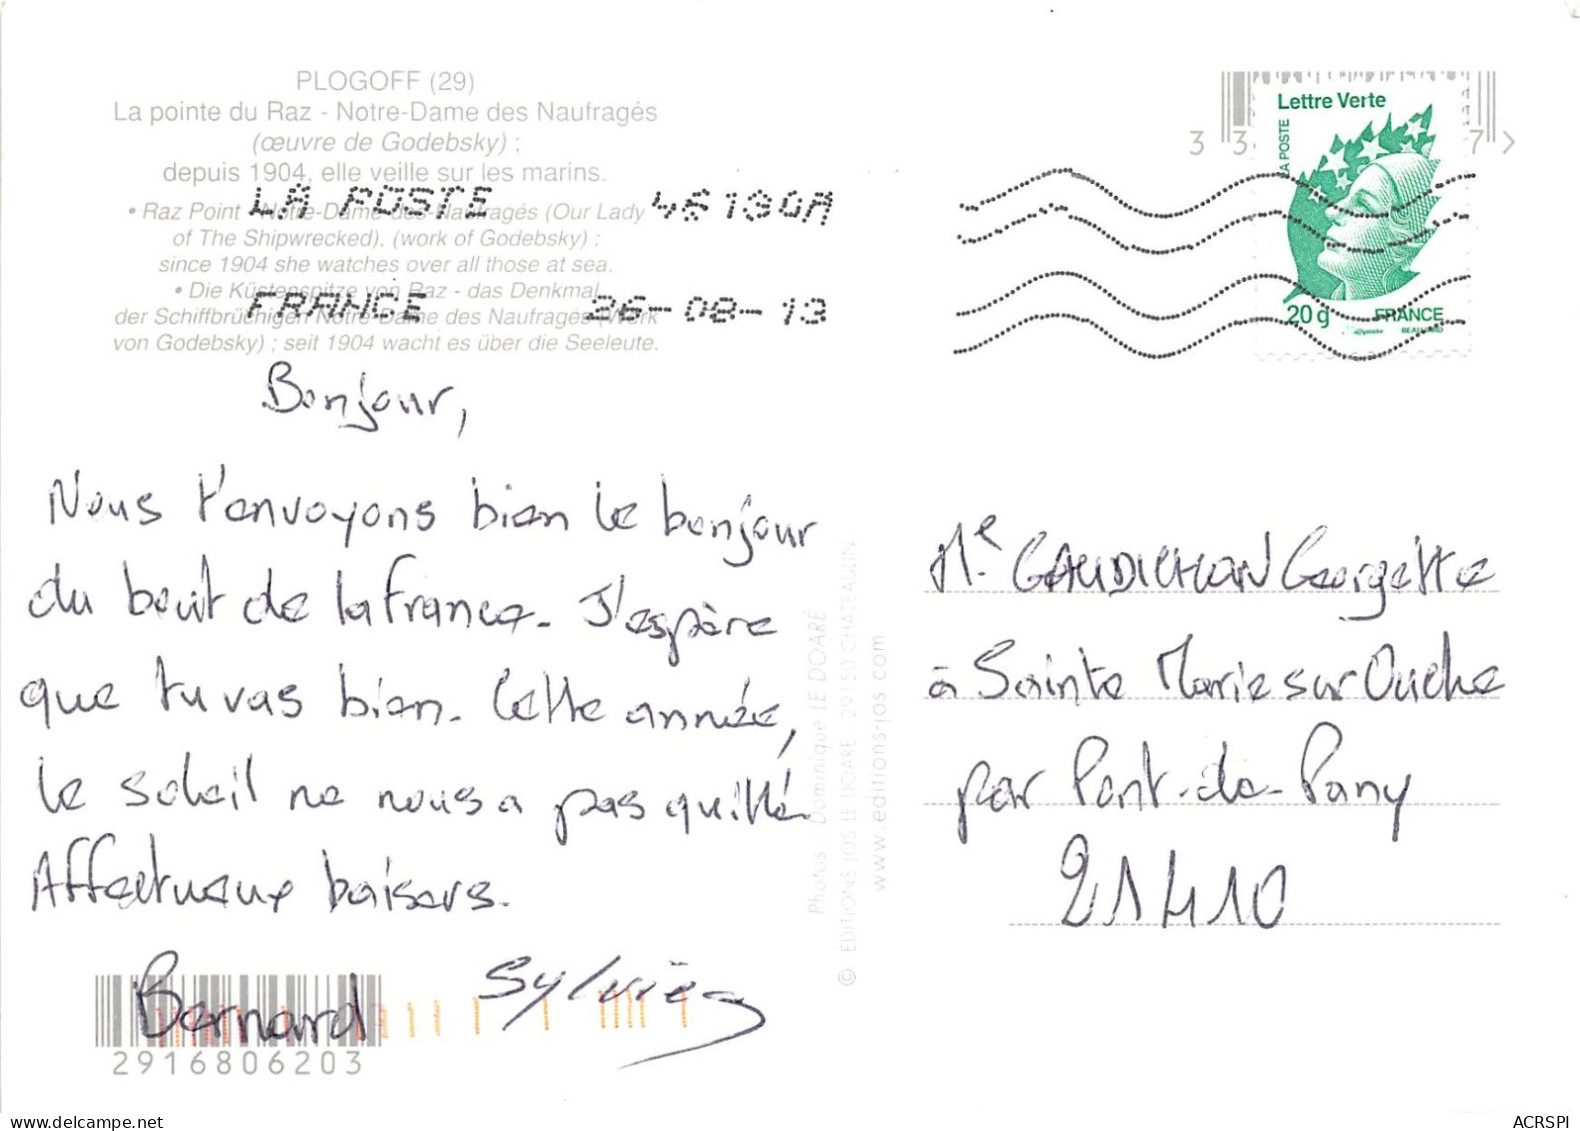 PLOGOFF (29)
La pointe du Raz - Notre-Dame des Naufragés
(œuvre de Godebsky) ;
depuis 1904, elle veille sur les marins.
• Raz Point - Notre-Dame-des-Naufragés (Our Lady
of The Shipwrecked). (work of Godebsky) :
since 1904 she watches over all those at sea.
• Die Küstenspitze von Raz - das Denkmal
der Schiffbrüchigen Notre-Dame des Naufragés (Werk
von Godebsky) ; seit 1904 wacht es über die Seeleute.
LA POSTE 46130A
FRANCE 26-08-13
3 3 7 >
Lettre Verte
LA POSTE
20 g FRANCE
Bonjour,
Nous t'envoyons bien le bonjour
du bout de la France. J'espère
que tu vas bien. Cette année,
le soleil ne nous a pas quitté.
Affectueux baisers.
Bernard Sylvie
2916806203
Photos : Dominique LE DOARÉ
© EDITIONS JOS LE DOARE - 29150 CHATEAULIN
www.editions-jos.com
Me GAUDICHON Georgette
à Sainte Marie sur Ouche
par Pont-de-Pany
21410
ACRSPI